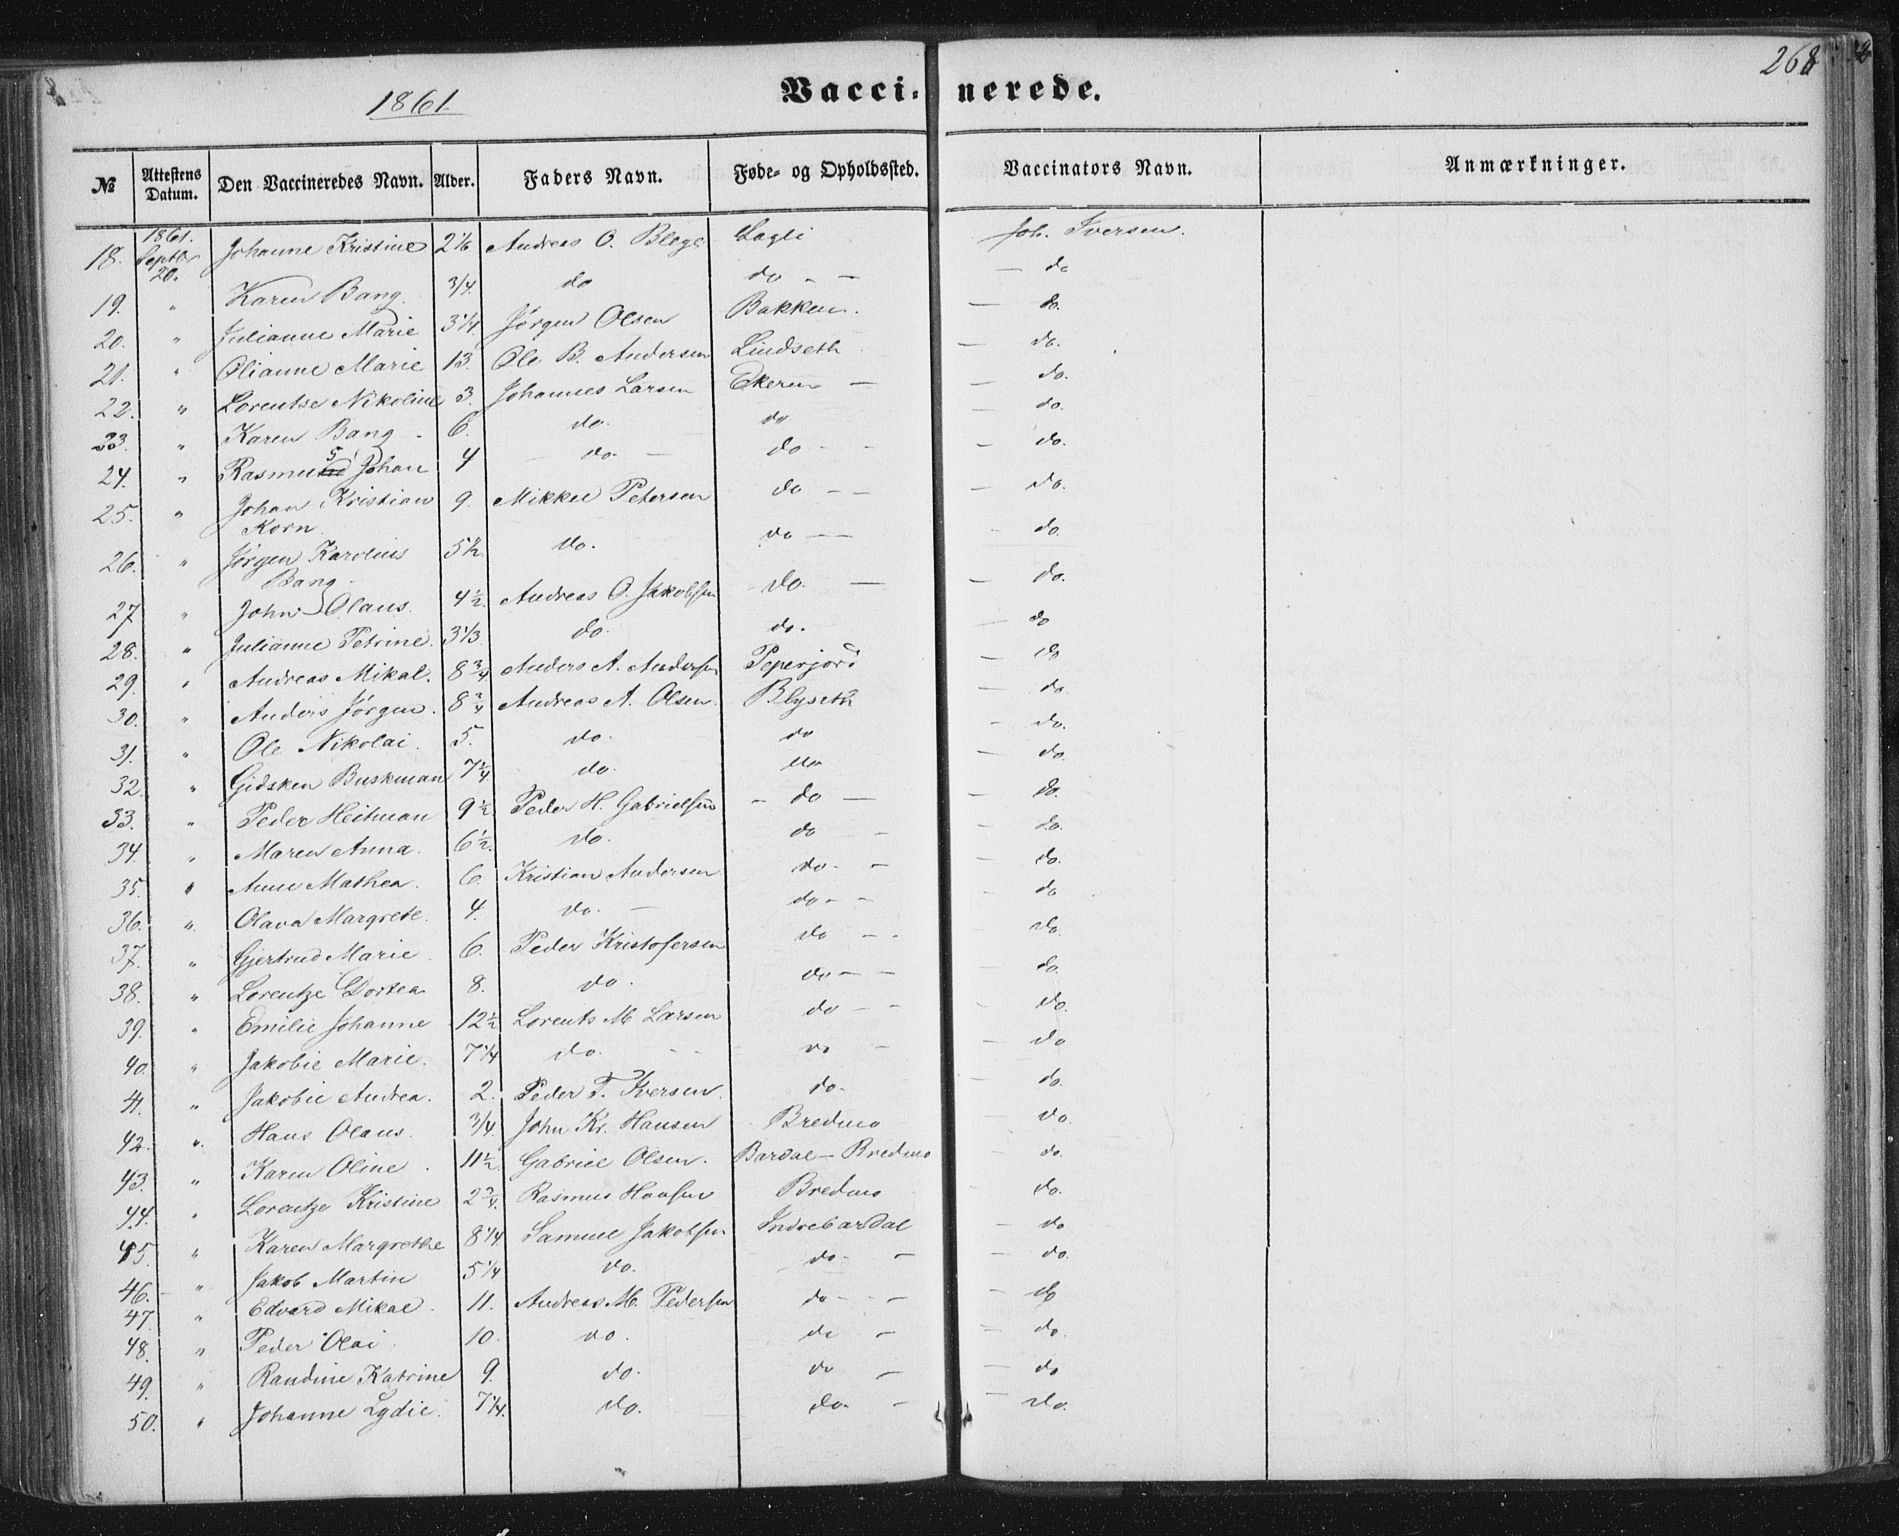 268
1861.
Vaccinerede.
№ Attestens Datum. Den Vaccineredes Navn. Alder. Faders Navn. Føde- og Opholdssted. Vaccinators Navn. Anmærkninger.
18. 1861. Septbr 20. Johanne Kristine 2 1/6 Andreas O. Lagli Joh. Iversen.
19. " Karen Bang. 3/4. do do - - - do
20. " Julianne Marie 3 1/4 Jørgen Olsen Bakken. - do.
21. " Olianne Marie 13. Ole B. Andersen Lindseth - do.
22. " Lorentze Nikoline 3. Johannes Larsen Ekeren - - do.
23. " Karen Bang - 6. do. do - do.
24. " Rasmus Johan 4 - do. - do - - - do.
25. " Johan Kristian Korn 9. Mikkel Petersen do - - - do.
26. " Jørgen Karolius Bang. 5 1/2. do. do - - - do.
27. " John Olaus. 4 1/2. Andreas O. Jakobsen do. - - do.
28. " Julianne Petrine. 3 1/3 do. do. - do
29. " Andreas Mikal. 8 3/4 Anders A. Andersen Peperjord - do
30. " Anders Jørgen. 8 3/4 Andreas A. Olsen. Blyseth - do.
31. " Ole Nikolai. 5. do. do - do.
32. " Gidsken Buskman 7 1/4. do. do - do.
33. " Peder Heitman 9 1/2 Peder H. Gabrielsen - do - - do.
34. " Maren Anna. 6 1/2. do. do - - do.
35. " Anne Mathea. 6. Kristian Andersen do. - - do.
36. " Olava Margrete. 4. do. - do - - - do
37. " Gjertrud Marie. 6. Peder Kristofersen do - - - do.
38. " Lorentze Dortea 8. do. do - - - do.
39. " Emilie Johanne 12 1/2 Lorents M Larsen do - - - do.
40. " Jakobie Marie. 7 1/4 do. - - do - - do
41. " Jakobie Andrea. 2. Peder T. Iversen. do. - do.
42. " Hans Olaus. 3/4. John Kr. Hansen Bredmo - do.
43. " Karen Oline. 11 1/2. Gabriel Olsen. Bardal - Bredmo - do.
44. " Lorentze Kristine 2 3/4. Rasmus Hansen Bredmo - do.
45. " Karen Margrethe 8 1/4 Samuel Jakobsen Indrebardal - do
46. " Jakob Martin 5 1/4 do. do. - - do.
47. " Edvard Mikal. 11. Andreas M. Pedersen do - - - - do
48. " Peder Olai. 10. do. do - - do.
49. " Randine Katrine 9. do. do - - do
50. " Johanne Lydie. 7 1/4. do. do. - - do.